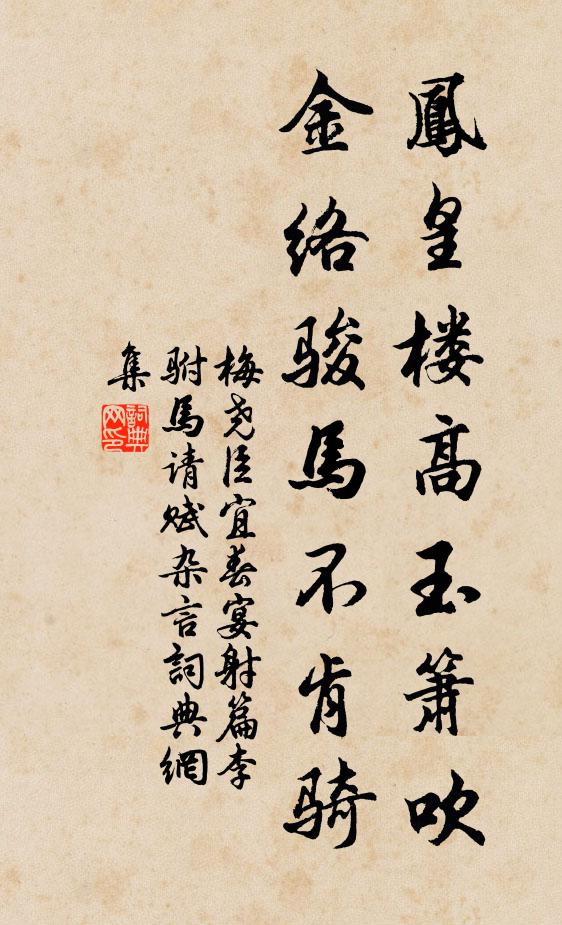 鳳皇楼高玉簫吹
金络骏馬不肯骑
梅尧臣宜春宴射篇李
駙馬请赋杂言詞典網
集
詞典网印